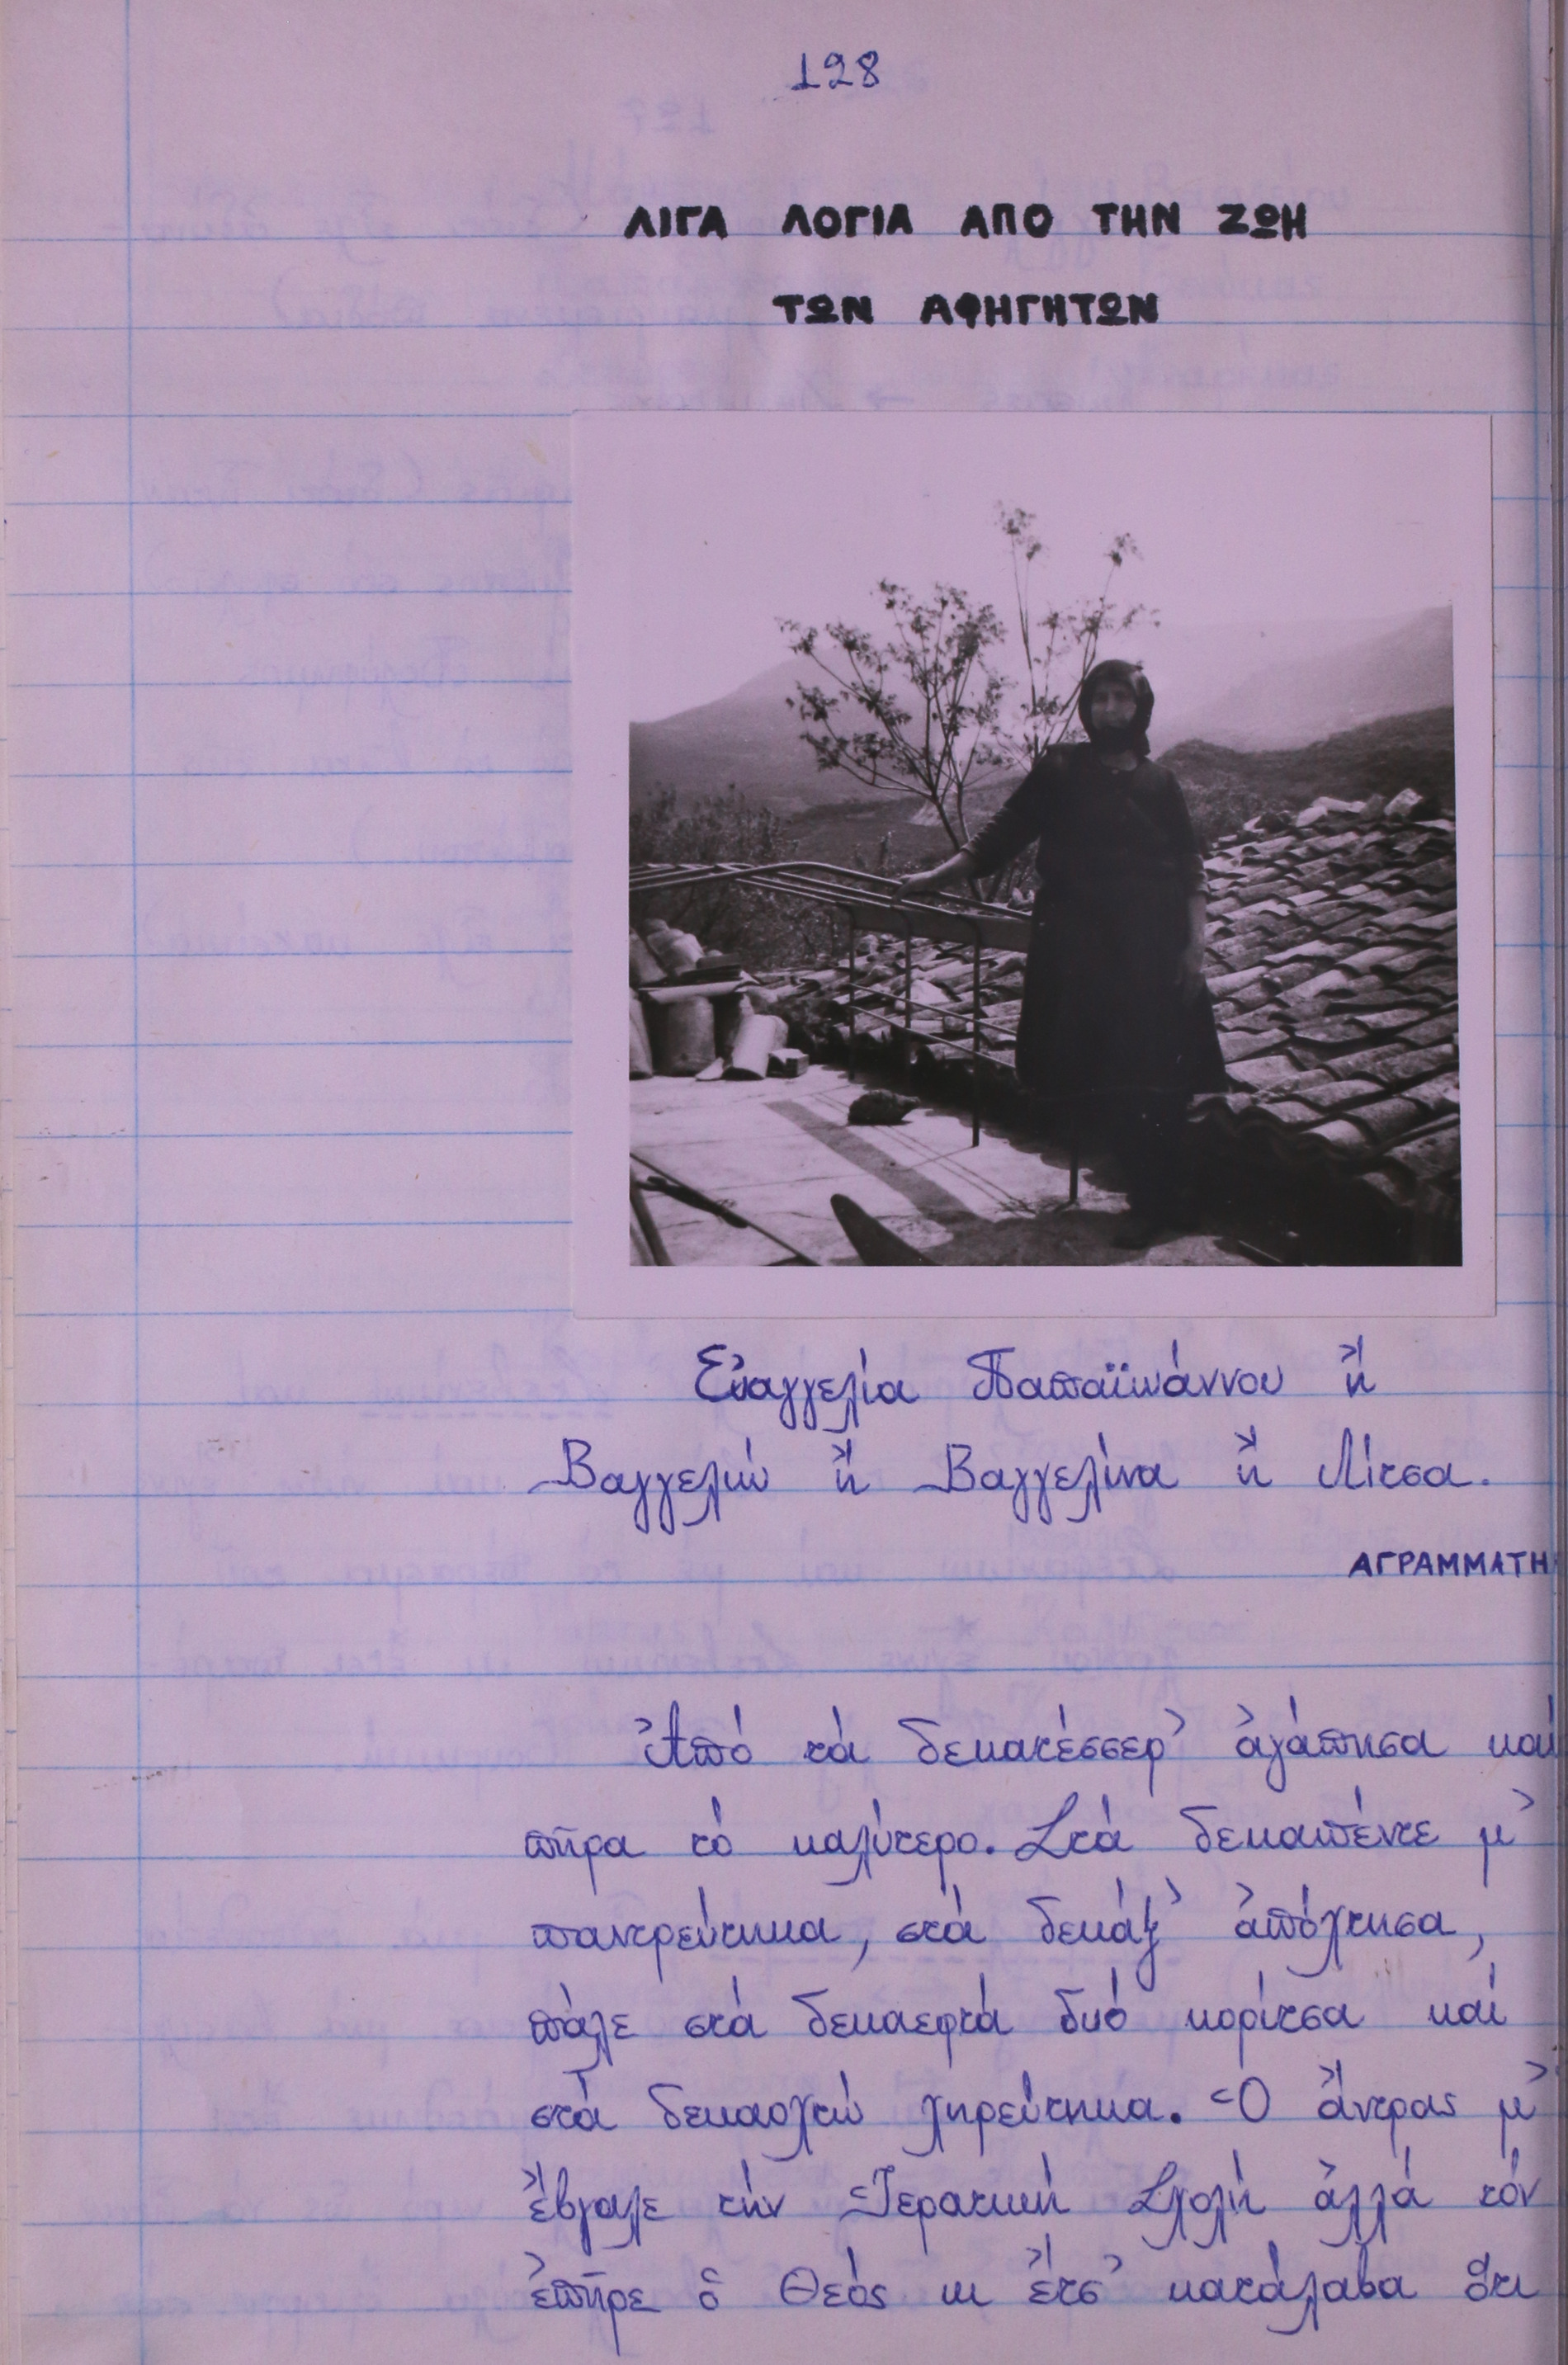 128
ΛΙΓΑ ΛΟΓΙΑ ΑΠΟ ΤΗΝ ΖΩΗ
ΤΩΝ ΑΦΗΓΗΤΩΝ
Εὐαγγελία Παπαϊωάννου ἤ
Βαγγελιώ ἤ Βαγγελίνα ἤ Λίτσα.
ΑΓΡΑΜΜΑΤΗ
Ἀπό τά δεκατέσσερ' ἀγάπησα καί
πῆρα τό καλύτερο. Στά δεκαπέντε μ'
παντρεύτηκα, στά δεκάξ' ἀπόχτησα,
πάλε στά δεκαεφτά δυό κορίτσα καί
στά δεκαοχτώ χηρεύτηκα. Ὁ ἄντρας μ'
ἔβγαλε τήν Ἱερατική Σχολή ἀλλά τόν
ἐπῆρε ὁ Θεός κι ἔτσ' κατάλαβα ὅτι